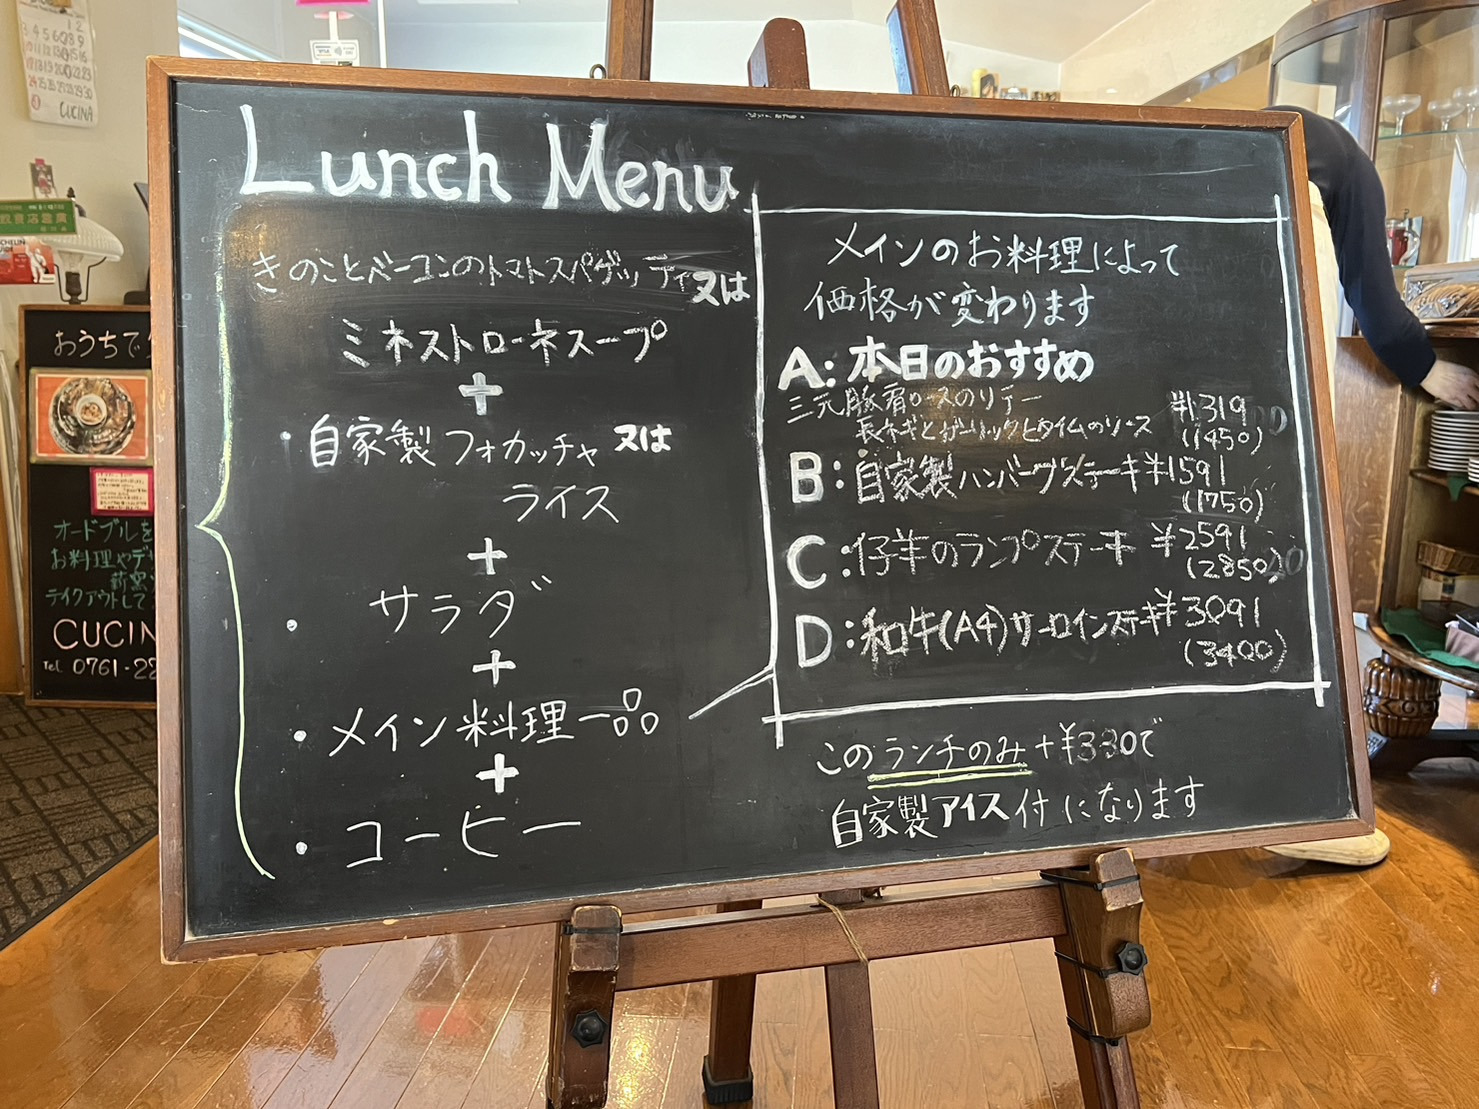 Lunch Menu
きのことベーコンのトマトスパゲッティ又は
ミネストローネスープ
+
・自家製フォカッチャ又は
ライス
+
・サラダ
+
・メイン料理一品
+
・コーヒー
メインのお料理によって
価格が変わります
A:本日のおすすめ
三元豚肩ロースのソテー
長ネギとガーリックとタイムのソース
¥1319
(1450)
B:自家製ハンバーグステーキ¥1591
(1750)
C:仔羊のランプステーキ ¥2591
(2850)
D:和牛(A4)サーロインステーキ¥3091
(3400)
このランチのみ+¥330で
自家製アイス付になります
おうちで
オードブルを
お料理やデ
テイクアウトして
CUCIN
Tel. 0761-22
CUCINA